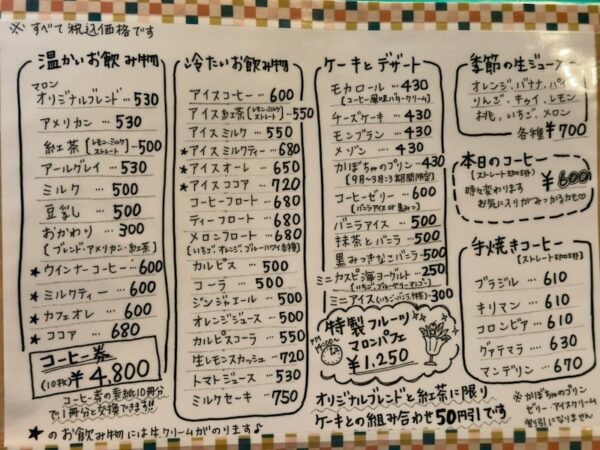 ※ すべて税込価格です
温かいお飲み物
マロン
オリジナルブレンド…530
アメリカン…530
紅茶[レモン,ミルク ストレート]…500
アールグレイ…530
ミルク 500
豆乳 500
おかわり…300
[ブレンド・アメリカン・紅茶]
★ウインナーコーヒー…600
★ミルクティー…600
★カフェオレ 600
★ココア…680
コーヒー券
(10枚)¥4,800
コーヒー券の表紙10冊分
で1冊分と交換できます!!
★のお飲み物には生クリームがのります♪
冷たいお飲み物
アイスコーヒー…600
アイス紅茶[レモン,ミルク ストレート]…550
アイスミルク…550
★アイスミルクティー…680
★アイスオーレ…650
★アイスココア…720
コーヒーフロート…680
ティーフロート…680
メロンフロート…680
[いちご,オレンジ,ブルーハワイ各種]
カルピス…500
コーラ…500
ジンジャエール…500
オレンジジュース…500
カルピスコーラ…550
生レモンスカッシュ…720
トマトジュース…530
ミルクセーキ…750
ケーキとデザート
モカロール…430
[コーヒー風味バタークリーム]
チーズケーキ…430
モンブラン…430
メゾン…430
かぼちゃのプリン…430
[9月~3月:3期間限定]
コーヒーゼリー…600
(バニラアイスor黒みつ)
バニラアイス…500
抹茶とバニラ…500
黒みつきなこバニラ…500
ミニカスピ海ヨーグルト…250
(いちご,ブルーベリー,マンゴー)
ミニアイス(いちご,バニラ,抹茶)…300
特製フルーツ
マロンパフェ
¥1,250
オリジナルブレンドと紅茶に限り
ケーキとの組み合わせ50円引です
季節の生ジュース
オレンジ,バナナ,パイ
りんご,キウイ,レモン
桃,いちご,メロン
各種¥700
本日のコーヒー
[ストレート珈琲]
¥600
時々変わります
お気に入りがみつかるかも♡
手焼きコーヒー
[ストレート珈琲]
ブラジル…610
キリマン…610
コロンビア…610
グァテマラ…630
マンデリン…670
※かぼちゃのプリン
ゼリー・アイスクリーム
割引になりません